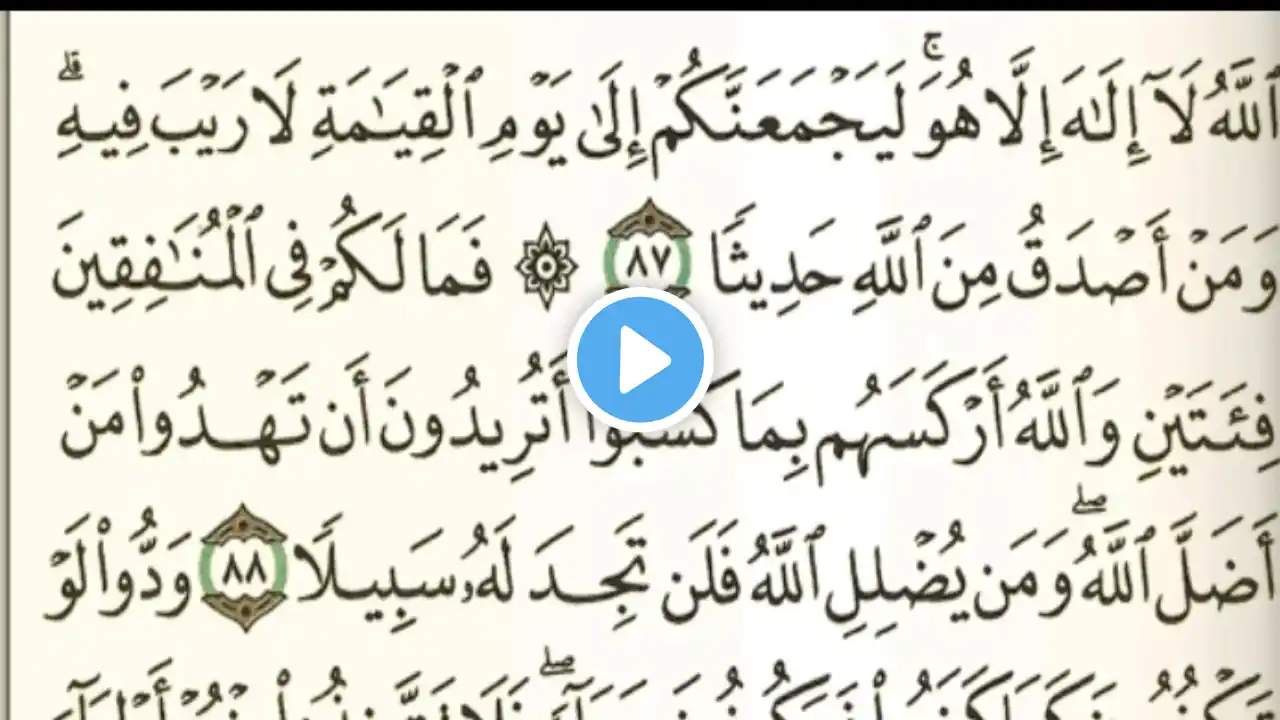 ٱللَّهُ لَآ إِلَٰهَ إِلَّا هُوَۚ لَيَجۡمَعَنَّكُمۡ إِلَىٰ يَوۡمِ ٱلۡقِيَٰمَةِ لَا رَيۡبَ فِيهِۗ
وَمَنۡ أَصۡدَقُ مِنَ ٱللَّهِ حَدِيثٗا ٨٧ ۞ فَمَا لَكُمۡ فِي ٱلۡمُنَٰفِقِينَ
فِئَتَيۡنِ وَٱللَّهُ أَرۡكَسَهُم بِمَا كَسَبُوٓاْ أَتُرِيدُونَ أَن تَهۡدُواْ مَنۡ
أَضَلَّ ٱللَّهُۖ وَمَن يُضۡلِلِ ٱللَّهُ فَلَن تَجِدَ لَهُۥ سَبِيلٗا ٨٨ وَدُّواْ لَوۡ